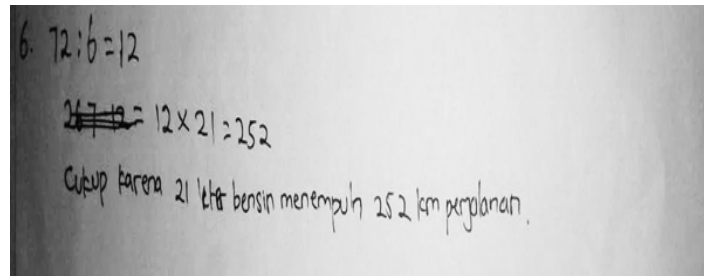 6. 72:6=12
= 12 x 21 = 252
Cukup karena 21 liter bensin menempuh 252 km perjalanan.